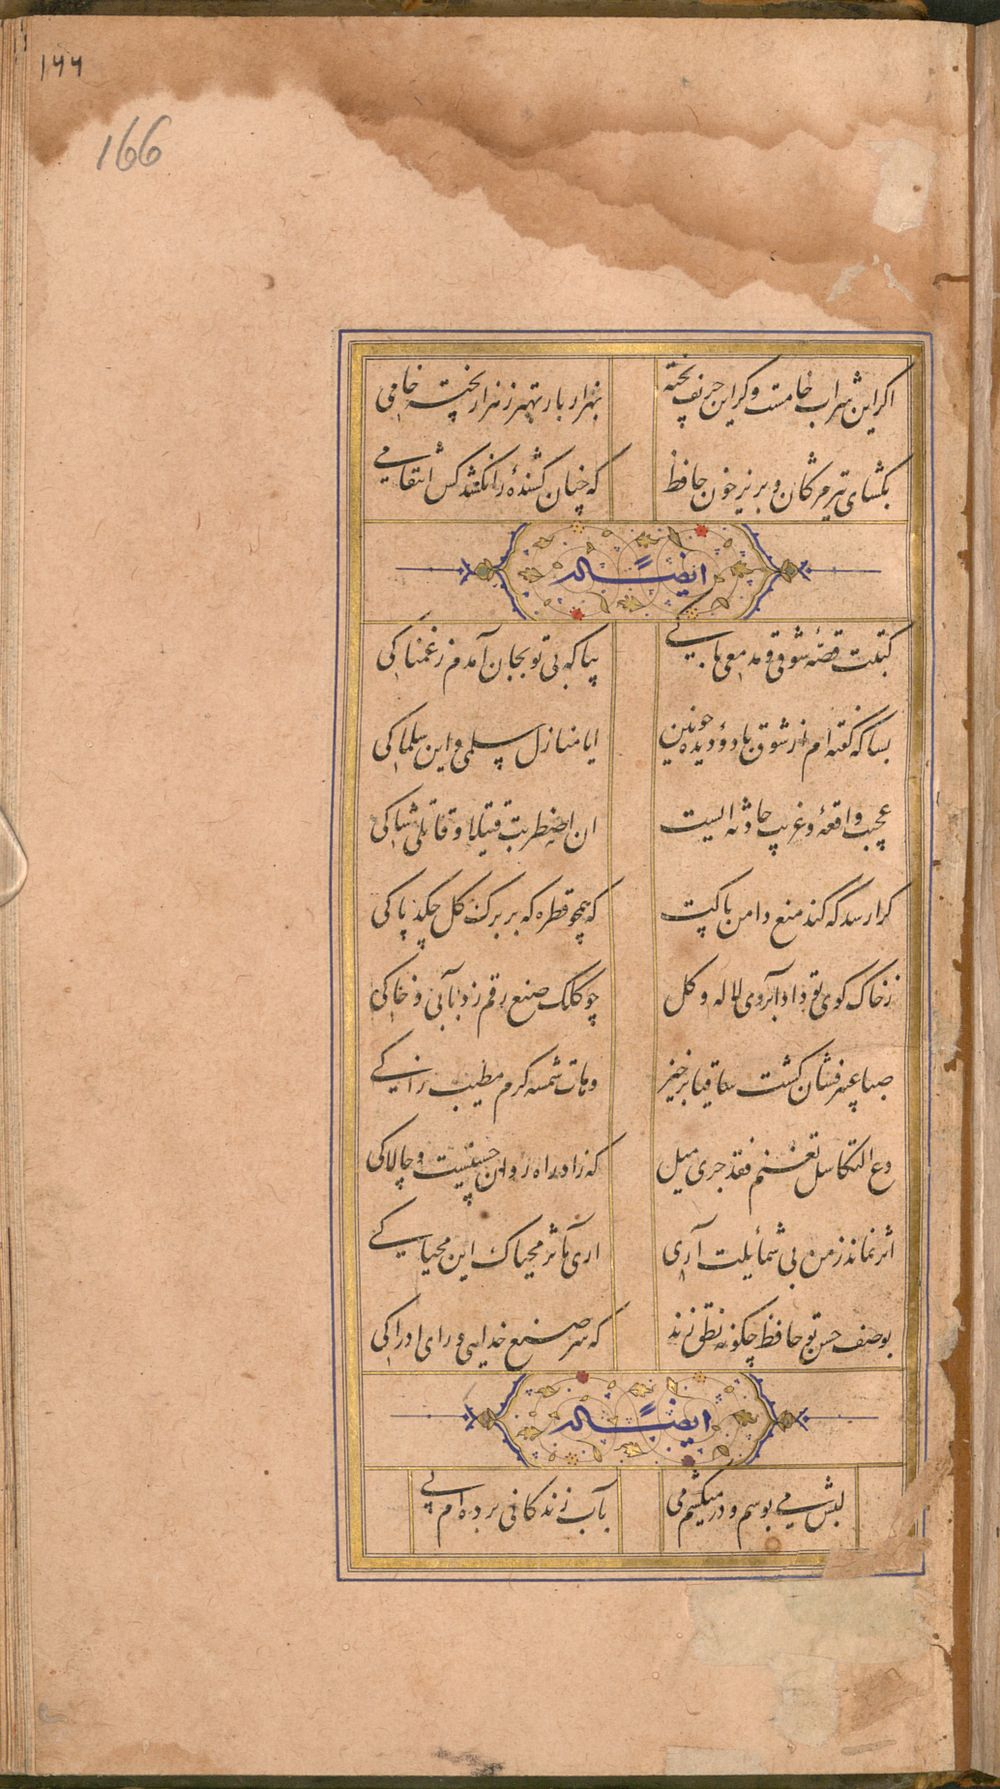 ۱۶۶
166
اگر این شراب خامست و گر این حریف پخته
بهزار بار بهتر ز هزار پخته خامی
بگشای تیر مژگان و بریز خون حافظ
که چنان کشندهٔ را نکشد کس انتقامی
ایضاً له
کتبت قصهٔ شوقی و مدمعی باکی
بیا که بی تو بجان آمدم ز غمناکی
بسا که گفته‌ام از شوق با دو دیده خونین
ایا منازل سلمی و این سلماکی
عجیب واقعهٔ و غریب حادثه ایست
ان اضطربت قتیلا و قاتلی شاکی
کرا رسد که کند منع دامن پاکت
که همچو قطره که بر برگ گل چکد پاکی
ز خاک کوی تو داد آبروی لاله و گل
چو کلک صنع رقم زد بآبی و خاکی
صبا عبیر فشان گشت ساقیا برخیز
و هات شمسه کرم مطیب زاکی
دع التکاسل تغنم فقد جری میل
که زاد راه روان چستیست و چالاکی
اثر نماند ز من بی شمایلت آری
اری مآثر محیاک این محیاکی
بوصف حسن تو حافظ چگونه نطق زند
که سر صنع خدایی ورای ادراکی
ایضاً له
لبش می بوسم و در میکشم می
بآب زندگانی برده‌ام پی